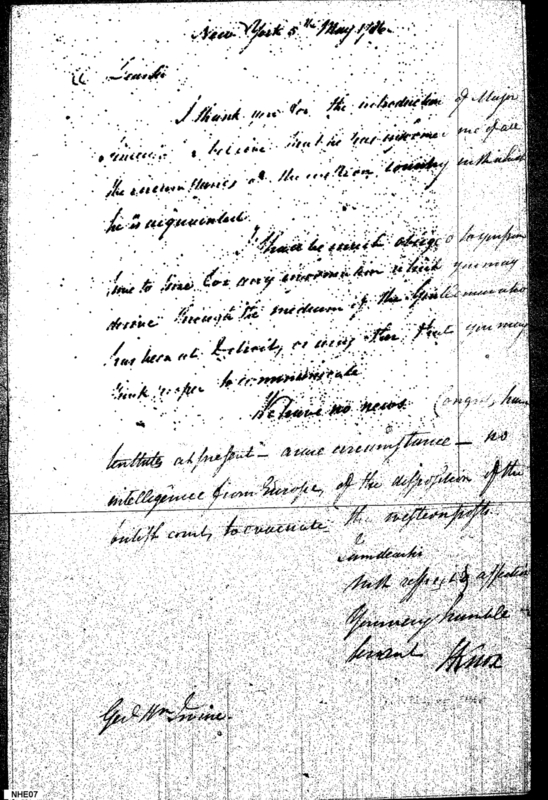 New York 5th May 1786
Dear sir
I thank you for the introduction of Major
I believe that he has informed me of all
the circumstances of the western country with which
he is acquainted
I shall be much obliged to you from
time to time for any information which you may
derive through the medium of the Gentleman who
has been at Detroit, or any other that you may
think proper to communicate
We have no news. Congress have
at present - a circumstance - no
intelligence from Europe, of the disposition of the
british court, to evacuate the western posts.
I am dear sir
with respect & affection
Your very humble
Servant HKnox
Genl Wm Irvine.
NHE07